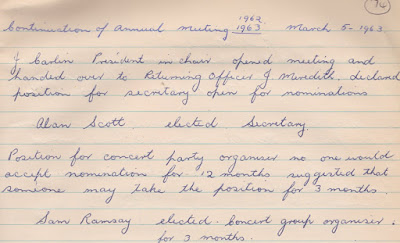 74
1962
Continuation of Annual Meeting 1963 March 5-1963.
J Carlin President in chair opened meeting and
handed over to Returning Officer J Meredith. declared
position for secretary open for nominations
Alan Scott elected Secretary.
Position for concert party organiser no one would
accept nomination for 12 months suggested that
someone may take the position for 3 months.
Sam Ramsay elected Concert group organiser.
for 3 months.